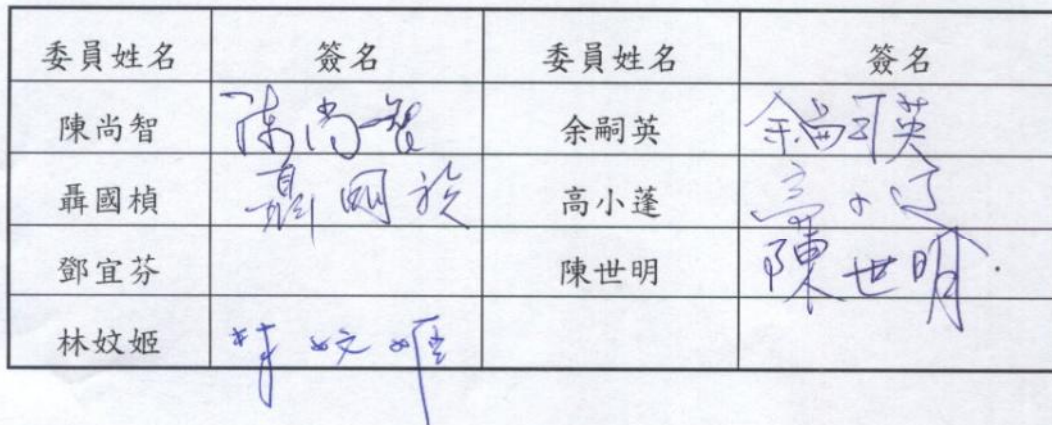 委員姓名 簽名 委員姓名 簽名
陳尚智 陳尚智 余嗣英 余嗣英
聶國楨 聶國楨 高小蓬 高小蓬
鄧宜芬 陳世明 陳世明
林妏姬 林妏姬